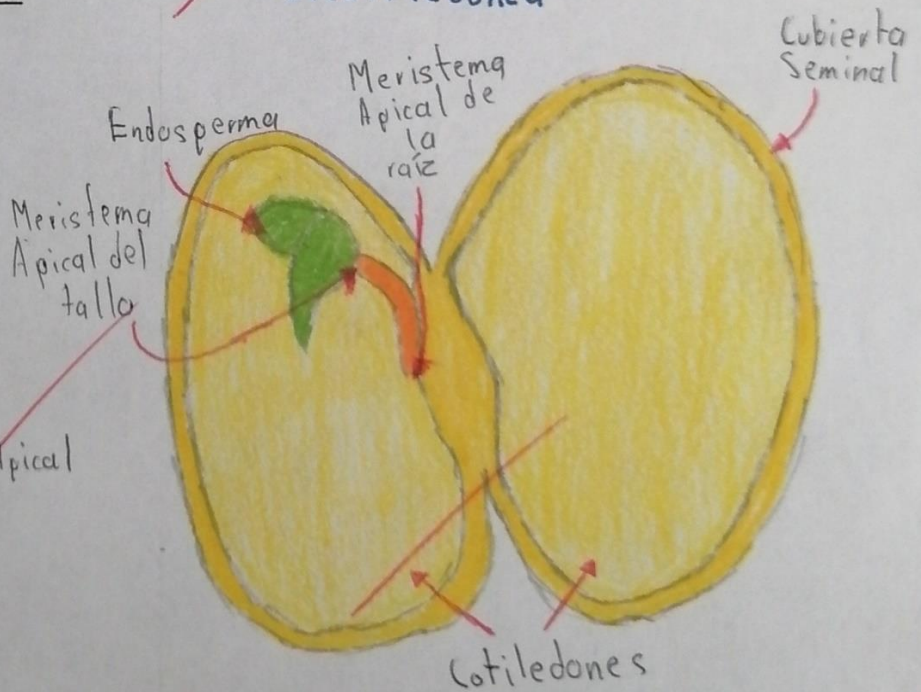 Cubierta
Seminal
Meristema
Apical de
la
raíz
Endosperma
Meristema
Apical del
tallo
pical
Cotiledones